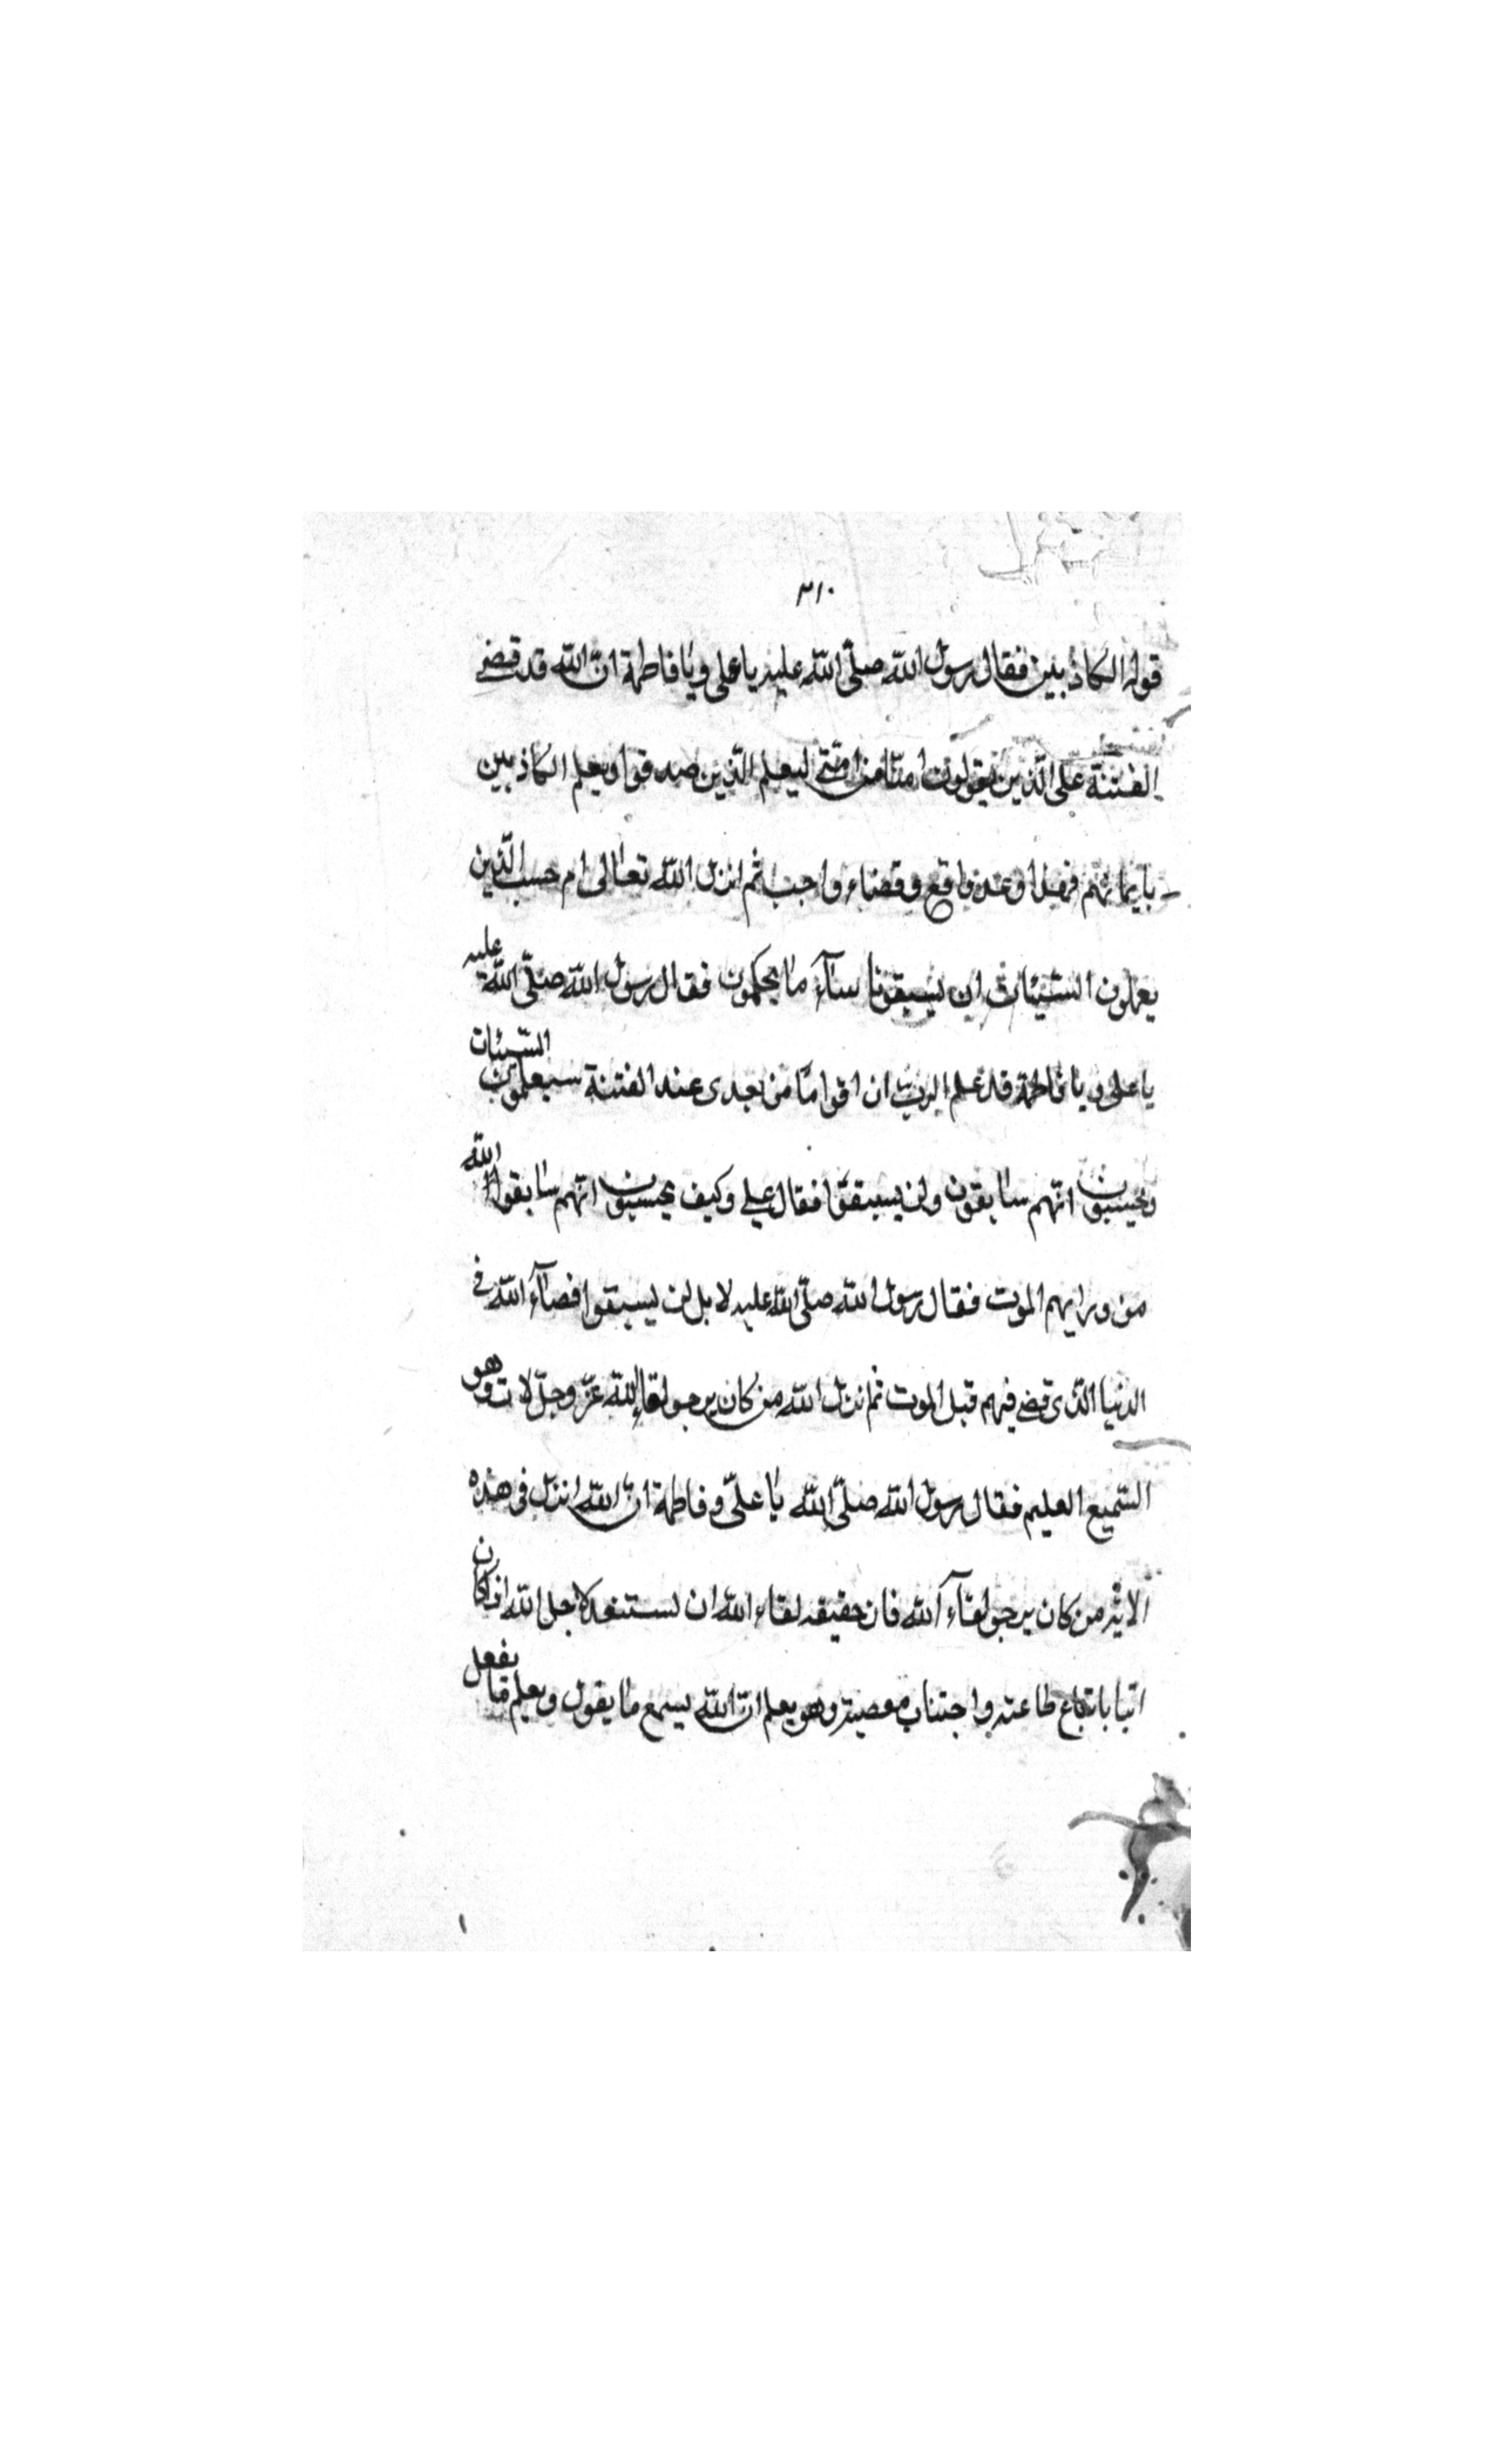 ٣١٠
قوله الكاذبين فقال رسول الله صلّى الله عليه يا على ويا فاطمة انّ الله قد قضى
الفتنة على الّذين يقولون امنّا من امّتى ليعلم الّذين صدقوا ويعلم الكاذبين
بايمانهم فهذا وعد واقع وقضاء واجب ثم انزل الله تعالى ام حسب الّذين
يعملون السّيئات ان يسبقونا سآء ما يحكمون فقال رسول الله صلّى الله عليه
يا على ويا فاطمة قد علم الربّ ان اقواما من بعدى عند الفتنة سيعملون السّيئات
ويحسبون انّهم سابقون ولن يسبقوا فقال على وكيف يحسبون انّهم سابقوا الله
من ورايهم الموت فقال رسول الله صلّى الله عليه لا بل لن يسبقوا قضآء الله فى
الدنيا الّذى قضى فيهم قبل الموت ثم نزل الله من كان يرجو لقا الله عزّ وجلّ لات وهو
السّميع العليم فقال رسول الله صلّى الله يا علىّ وفاطمة انّ الله انزل فى هذه
الاية من كان يرجو لقآء الله فان حقيقة لقاء الله ان تستعد لاجل الله اذا كان
اتيا باتباع طاعته واجتناب معصيته وهو يعلم انّ الله يسمع ما يقول ويعلم ما يفعل